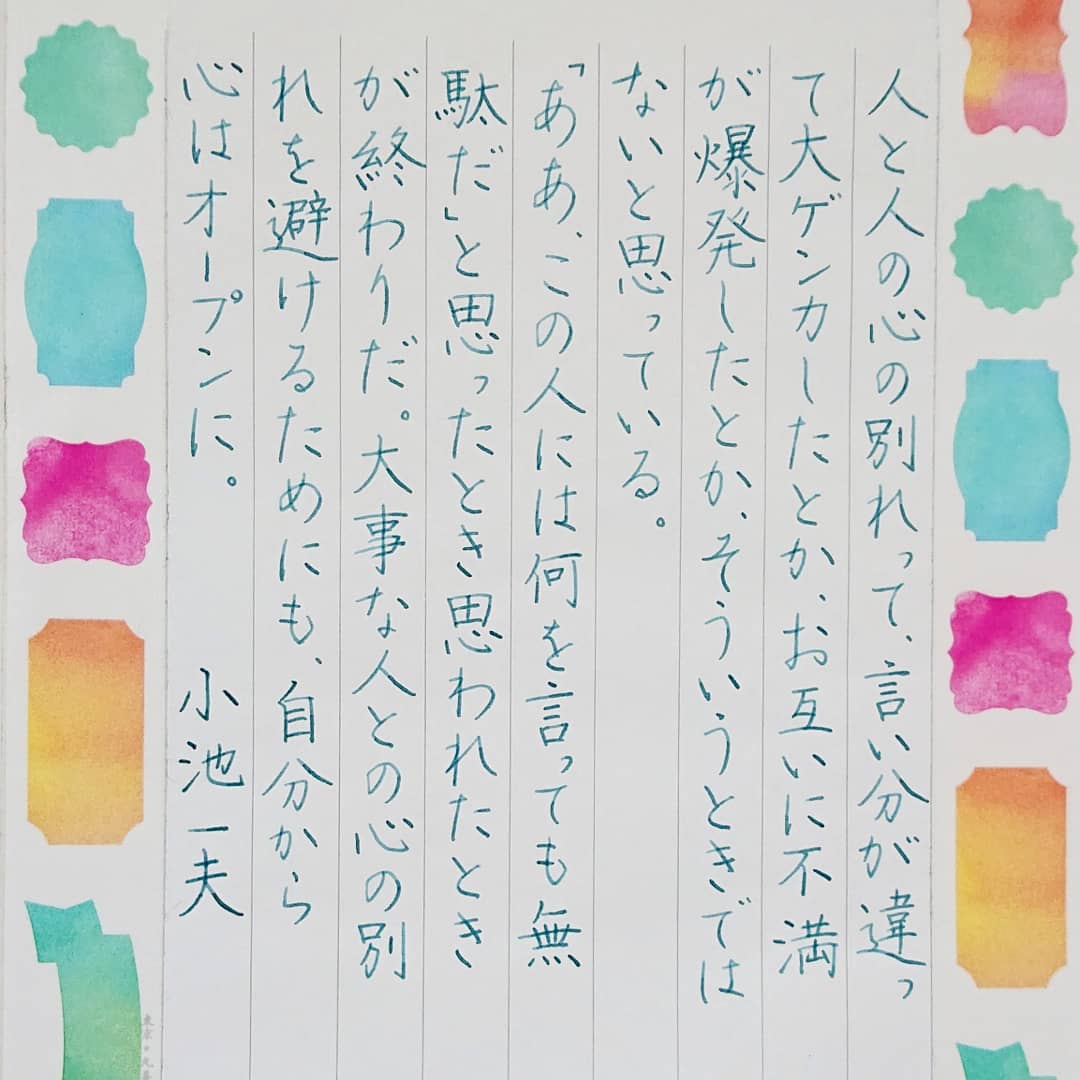 人と人の心の別れって、言い分が違っ
て大ゲンカしたとか、お互いに不満
が爆発したとか、そういうときでは
ないと思っている。
「ああ、この人には何を言っても無
駄だ」と思ったとき思われたとき
が終わりだ。大事な人との心の別
れを避けるためにも、自分から
心はオープンに。 小池一夫
東京・丸